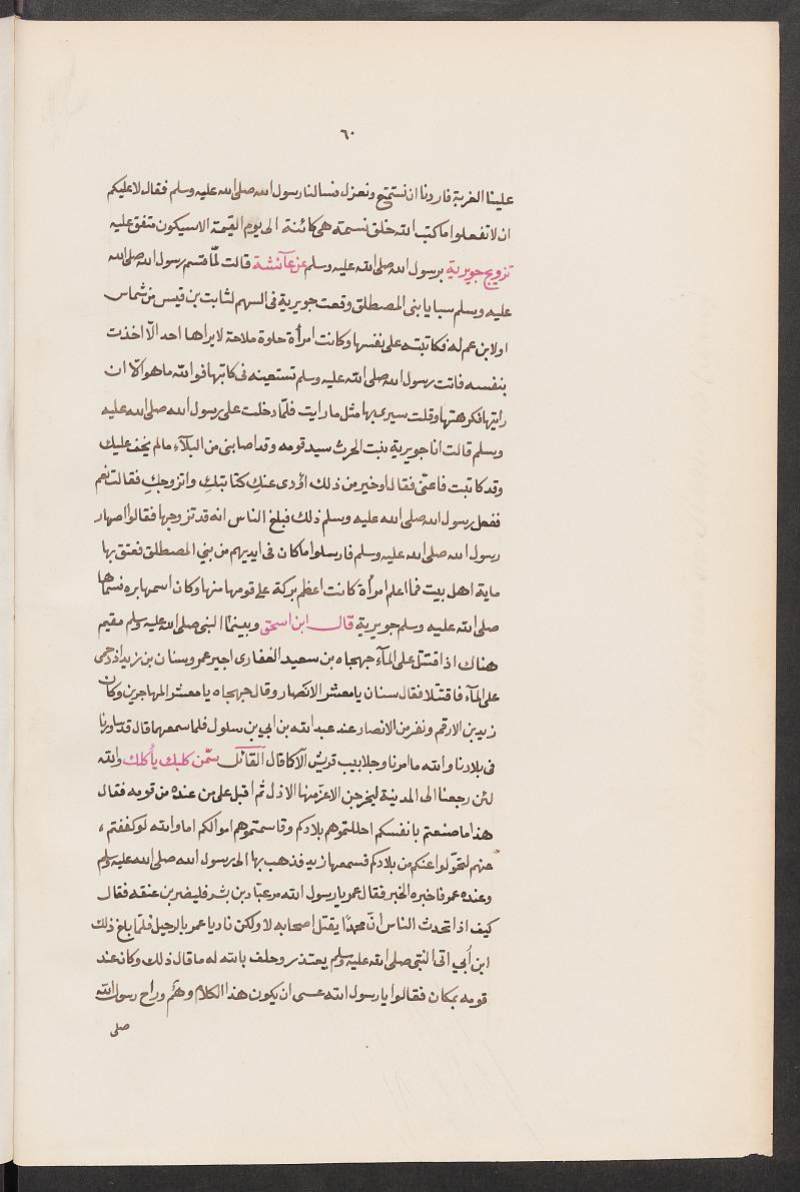 ٦٠
علينا الغربة فاردنا ان نستمتع ونعزل فسالنا رسول الله صلى الله عليه وسلم فقال لا عليكم
ان لا تفعلوا ما كتب الله خلق نسمة هى كائنة الى يوم القيمة الا سيكون متفق عليه
تزويج جويرية برسول الله صلى الله عليه وسلم عن عآئشة قالت لمّا قسم رسول الله صلى الله
عليه وسلم سبايا بنى المصطلق وقعت جويرية فى السهم لثابت بن قيس بن شماس
اولابن عم له فكاتبته على نفسها وكانت امرأة حلوة ملاحة لا يراها احد الّا اخذت
بنفسه فاتت رسول الله صلى الله عليه وسلم تستعينه فى كتابتها فوالله ما هو الّا ان
رايتها فكرهتها وقلت سيرى منها مثل ما رايت فلمّا دخلت على رسول الله صلى الله عليه
وسلم قالت انا جويرية بنت الحرث سيد قومه وقد اصابنى من البلآء ما لم يخف عليك
وقد كاتبت فاعنّى فقال اوخير من ذلك اؤدى عنكِ كتابتكِ واتزوجكِ فقالت نعم
ففعل رسول الله صلى الله عليه وسلم ذلك فبلغ الناس انه قد تزوجها فقالوا اصهار
رسول الله صلى الله عليه وسلم فارسلوا ما كان فى ايديهم من بني المصطلق فعتق بها
ماية اهل بيت فما اعلم امرأة كانت اعظم بركة على قومها منها وكان اسمها بره فسماها
صلى الله عليه وسلم جويرية قال ابن اسحق وبينما النبى صلى الله عليه وسلم مقيم
هناك اذا قتتل على المآء جهجاه بن سعيد الغفارى اجير عمر وسنان بن زيد
على المآء فاقتتلا فقال سنان يا معشر الانصار وقال جهجاه يا معشر المهاجرين وكان
زيد بن الارقم ونفر من الانصار عند عبد الله بن ابي بن سلول فلما سمعهما قال قد ساورنا
فى بلادنا والله ما امرنا وجلابيب قريش الّا كما قال القائل سمّن كلبك يأكلك والله
لئن رجعنا الى المدينة ليخرجن الاعز منها الاذل ثم اقبل على من عنده من قومه فقال
هذا ما صنعتم بانفسكم احللتموهم بلادكم وقاسمتموهم اموالكم اما والله لو كففتم ،
عنهم لتحوّلوا عنكم من بلادكم فسمعها زيد فذهب بها الى رسول الله صلى الله عليه وسلم
وعنده عمر فاخبره الخبر فقال عمر يا رسول الله مر عبّاد بن بشر فليضربن عنقه فقال
كيف اذا تحدث الناس انّ محمدًا يقتل اصحابه لا ولكن ناد يا عمر بالرحيل فلمّا بلغ ذلك
ابن اُبي اتى النبّى صلى الله عليه وسلم يعتذر وحلف بالله له ما قال ذلك وكان عند
قومه بمكان فقالوا يا رسول الله عسى ان يكون هذا الكلام وهم وراح رسول الله
صلى